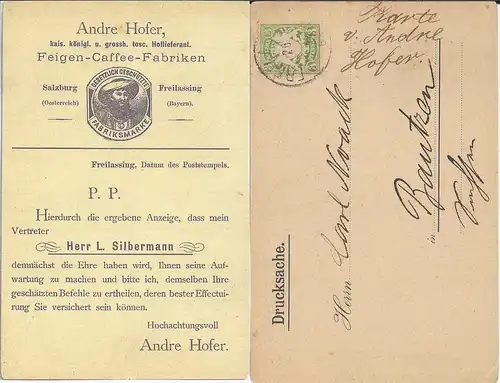 Andre Hofer,
kais. königl. u. grossh. tosc. Hoflieferant.
Feigen-Caffee-Fabriken
Salzburg
(Oesterreich)
GESETZLICH GESCHÜTZTE
FABRIKSMARKE
Freilassing
(Bayern).
Freilassing, Datum des Poststempels.
P. P.
Hierdurch die ergebene Anzeige, dass mein
Vertreter
Herr L. Silbermann
demnächst die Ehre haben wird, Ihnen seine Auf-
wartung zu machen und bitte ich, demselben Ihre
geschätzten Befehle zu ertheilen, deren bester Effectui-
rung Sie versichert sein können.
Hochachtungsvoll
Andre Hofer.
Karte
v. Andre
Hofer
Drucksache.
Herrn Carl Noack
in Bautzen
Sachsen